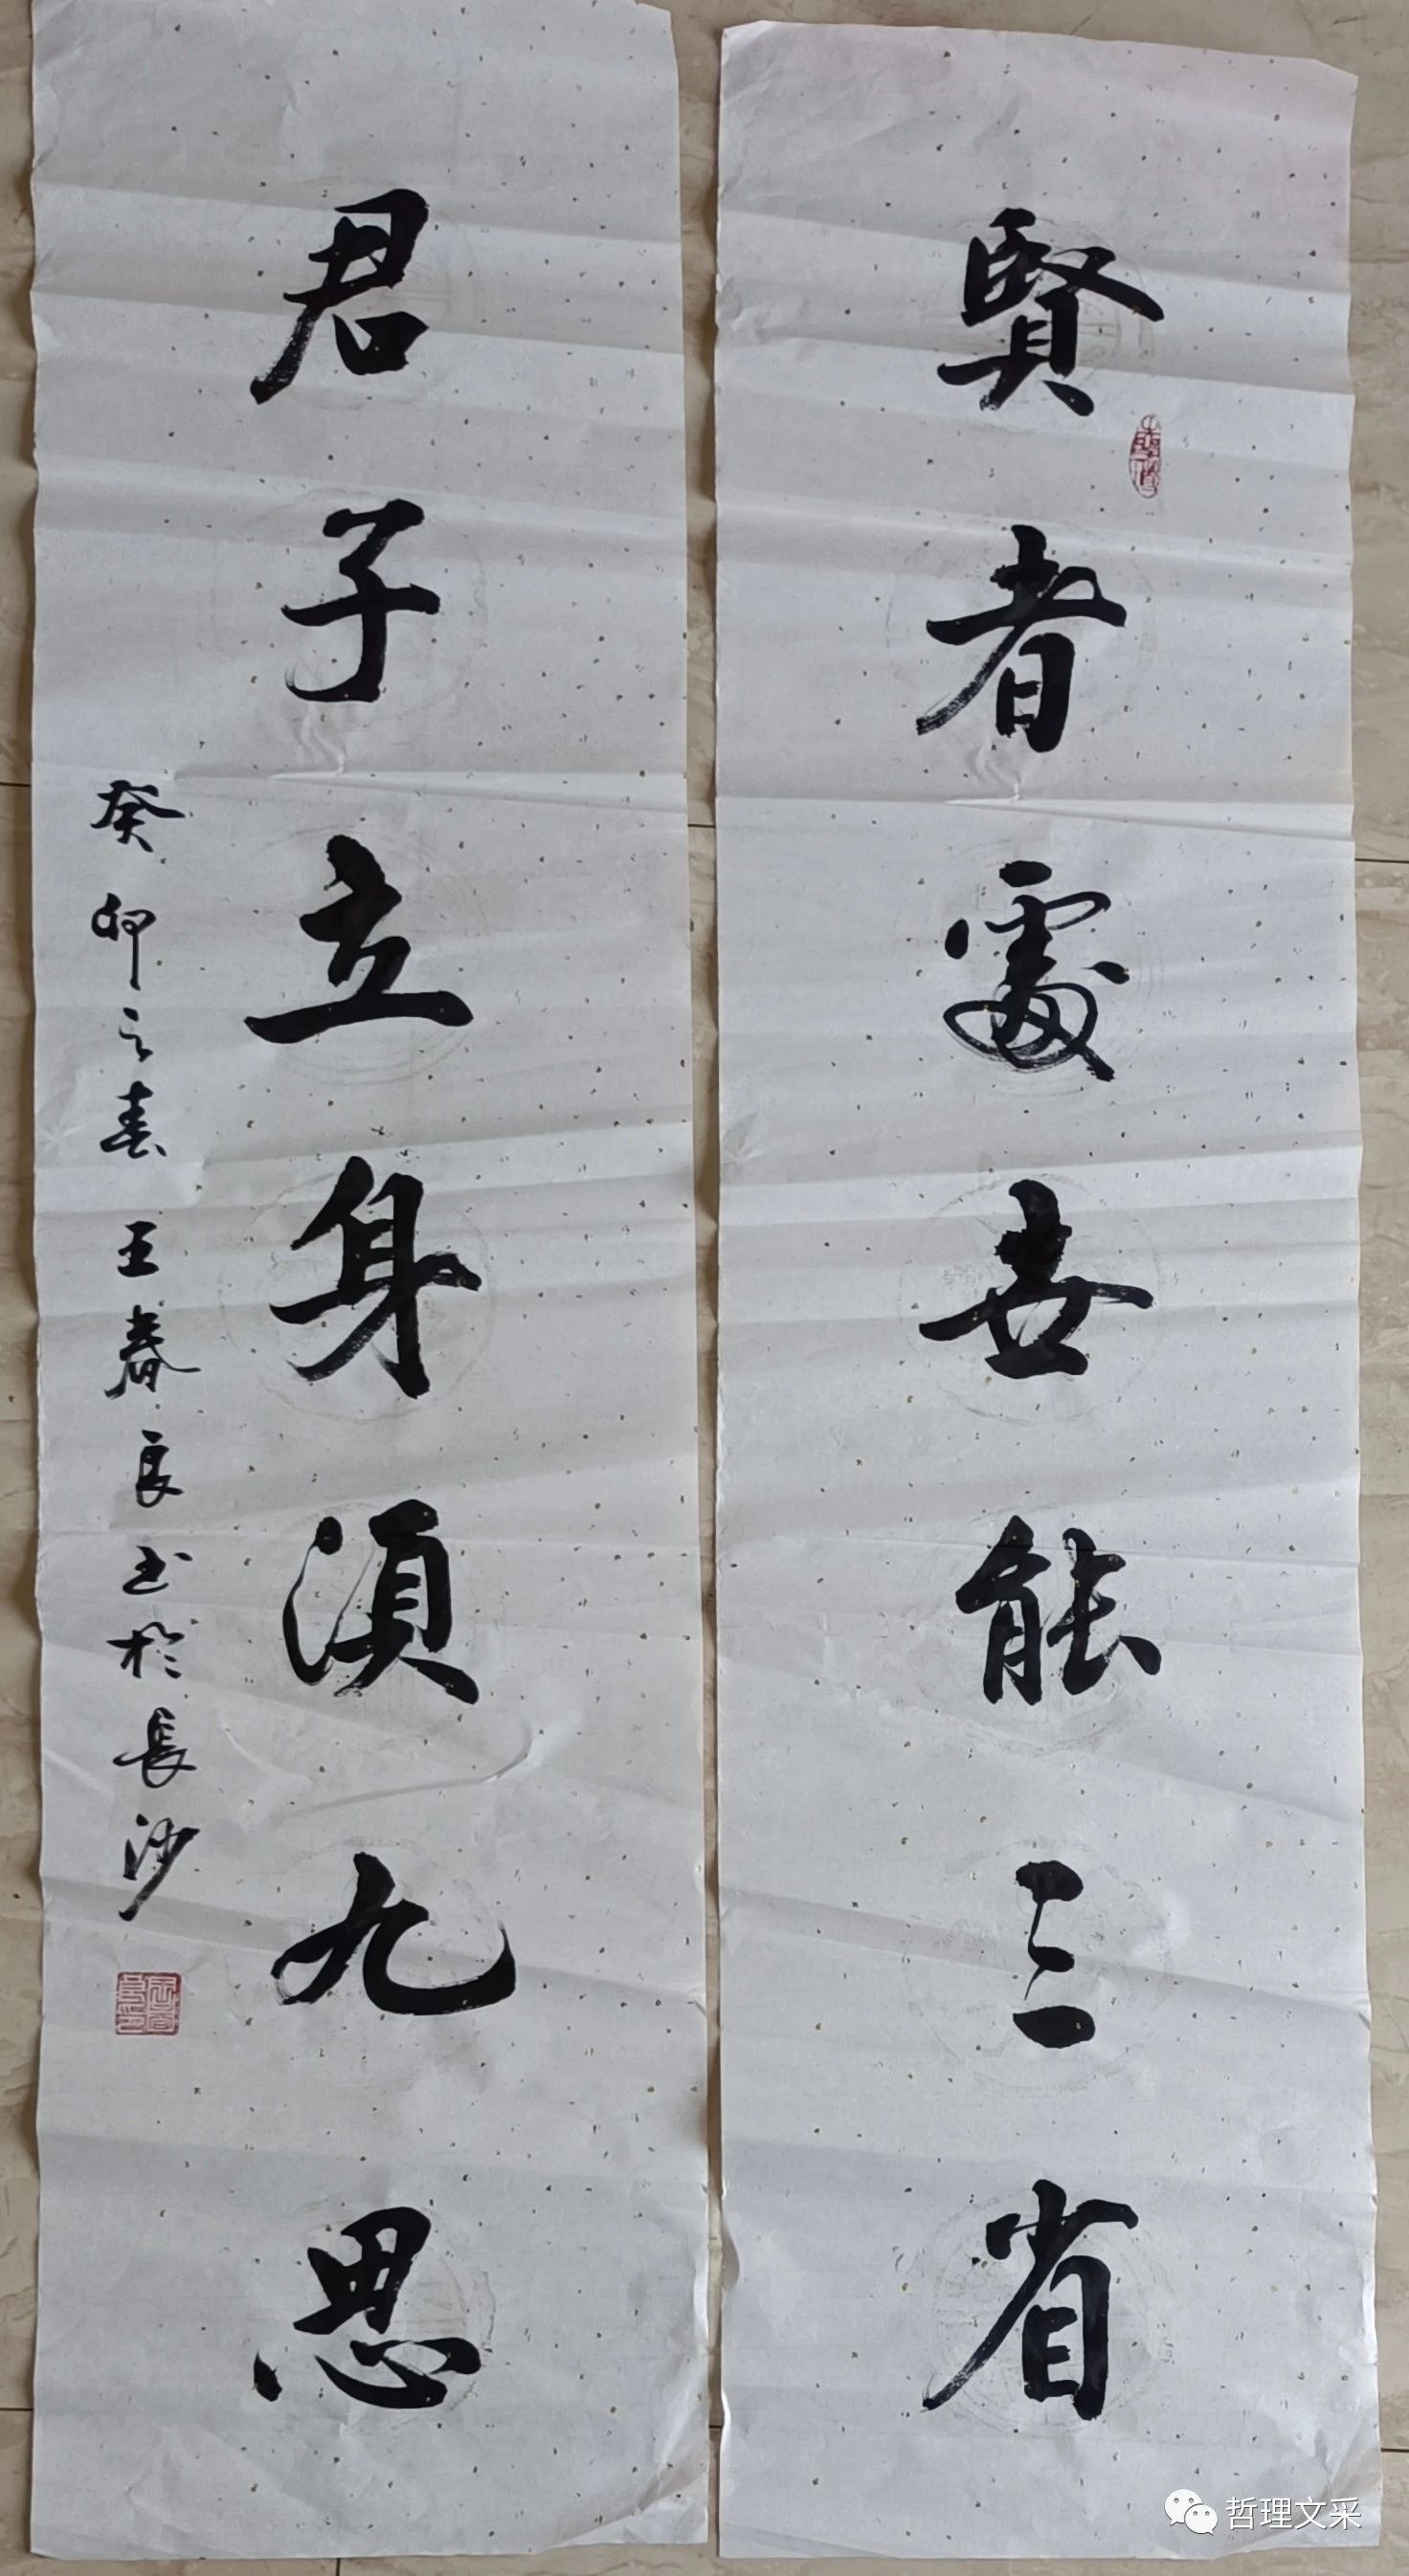 賢者處世能三省
君子立身須九思
癸卯之春 王春良书於長沙
哲理文采